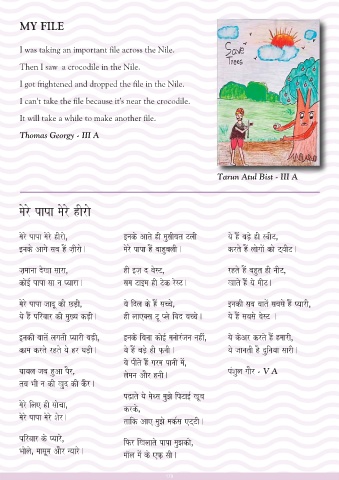 MY FILE
I was taking an important file across the Nile.
Then I saw a crocodile in the Nile.
I got frightened and dropped the file in the Nile.
I can't take the file because it's near the crocodile.
It will take a while to make another file.
Thomas Georgy - III A
Save
Trees
Tarun Atul Bist - III A
मेरे पापा मेरे हीरो
मेरे पापा मेरे हीरो,
इनके आगे सब हैं ज़ीरो।
ज़माना देखा सारा,
कोई पापा सा न प्यारा।
मेरे पापा जादू की छड़ी,
ये हैं परिवार की मुख्य कड़ी।
इनकी बातें लगती प्यारी बड़ी,
काम करते रहते ये हर घड़ी।
घायल जब हुआ पैर,
तब भी न की खुद की कैर।
मेरे लिए ही सोचा,
मेरे पापा मेरे शेर।
परिवार के प्यारे,
भोले, मासूम और न्यारे।
इनके आते ही मुसीबत टली
मेरे पापा हैं बाहुबली।
ही इज द बेस्ट,
सम टाइम ही टेक रेस्ट।
ये दिल के हैं सच्चे,
ही लाएक्स टू प्ले विद बच्चे।
इनके बिना कोई मनोरंजन नहीं,
ये हैं बड़े ही फनी।
ये पीते हैं गरम पानी में,
लेमन और हनी।
पढ़ाते ये मैथ्स मुझे पिटाई खूब
करके,
ताकि आए मुझे मार्कस एट्टी।
फिर खिलाते पापा मुझको,
मॉल में के एफ सी।
ये हैं बड़े ही स्वीट,
करते हैं लोगों को ट्वीट।
रहते हैं बहुत ही नीट,
खाते हैं ये मीट।
इनकी सब बातें सबसे हैं प्यारी,
ये हैं सबसे बेस्ट ।
ये केअर करते हैं हमारी,
ये जानती है दुनिया सारी।
पंशुल गौर - V A